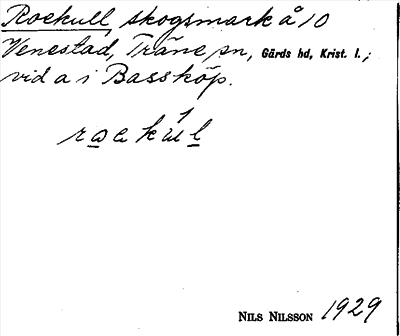 Roekull, skogsmark å 10
Venestad, Träne sn, Gärds hd, Krist. l.;
vid a i Bassköp.
roekúl
NILS NILSSON 1929